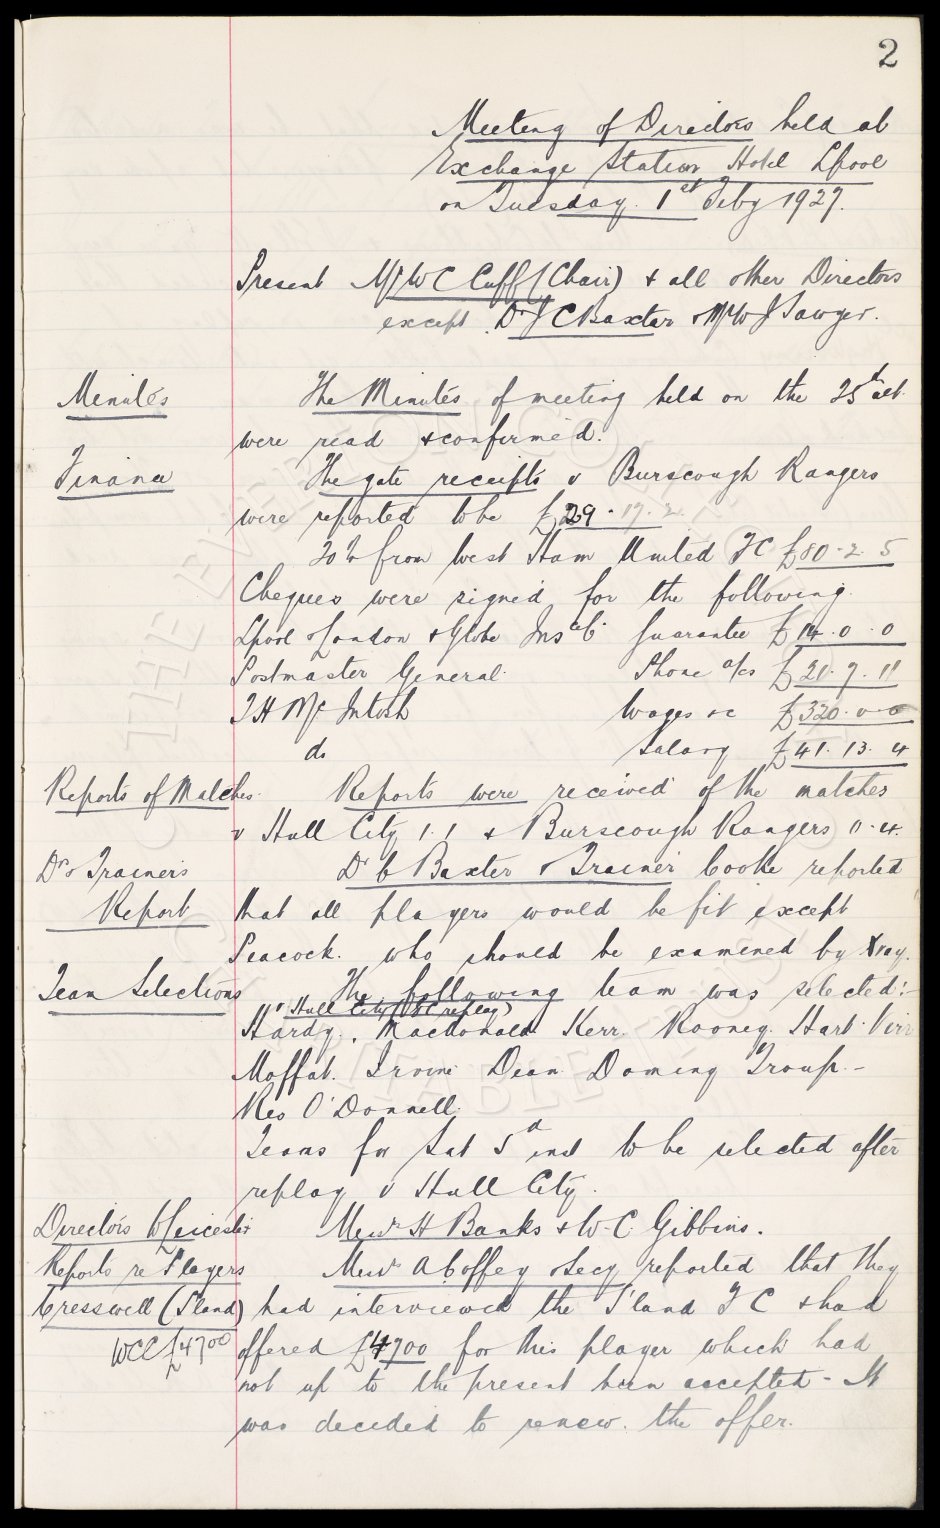 2
Meeting of Directors held at
Exchange Station Hotel Lpool
on Tuesday 1st Feby 1927.
Present Mr W C Cuff (Chair) & all other Directors
except Dr J C Baxter & Mr W J Sawyer.
Minutes
The Minutes of meeting held on the 25th ult
were read & confirmed.
Finance
The gate receipts v Burscough Rangers
were reported to be £29-17-2
20% from West Ham United FC £80-2-5
Cheques were signed for the following
Lpool & London & Globe Insce Co Guarantee £14-0-0
Postmaster General Phone a/cs £21.7.11
T H McIntosh Wages &c £320-0-0
do Salary £41.13.4
Reports of Matches
Reports were received of the matches
v Hull City 1.1 & Burscough Rangers 0-4.
Dr & Trainers
Report
Dr C Baxter & Trainer Cooke reported
that all players would be fit except
Peacock. who should be examined by Xray.
Team Selections
The following team was selected:-
v Hull City (EC replay)
Hardy. Macdonald Kerr Rooney. Hart. Virr
Moffat. Irvine Dean Doming Troup. -
Res O'Donnell.
Teams for Sat 5th inst to be selected after
replay v Hull City.
Directors to Leicester
Messrs H Banks & W. C. Gibbins.
Reports re Players
Cresswell (S'land)
WCC £4700
Messrs A Coffey & Secy reported that they
had interviewed the S'land FC & had
offered £4700 for this player which had
not up to the present been accepted - It
was decided to renew. the offer.
THE EVERTON COLLECTION CHARITABLE TRUST